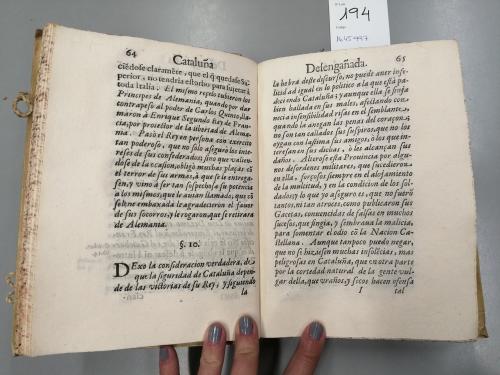 194
1645497
64
Cataluña
ciédose claraméte, que el q̃ quedase Su-
perior, no tendria estorbo para sugetar à
toda Italia. El mismo rezelo tubieron los
Principes de Alemania, quando por dar
contrapeso al poder de Carlos Quinto, lla-
maron à Enrique Segundo Rey de Fran-
cia, por protector de la libertad de Alema-
nia. Pasò el Rey en persona con exercito
tan poderoso, que no solo aseguro los inte-
reses de sus confederados, sino que valien-
dose de la ocasion, obligò muchas plaças cõ
el terror de sus armas, à que se le entregu-
sen, y vino à ser tan sospechosa su potencia
à los mismos, que le auian llamado, que cõ
solene embaxada le agradecieron el fauor
de sus socorros, y le rogaron, que se retirara
de Alemania.
§. 10.
DExo la consideracion verdadera, de
que la siguridad de Cataluña depen-
de de las victorias de su Rey, y siguiendo
la
Desengañada.
65
la hebra deste discurso, no puede auer infe-
licidad igual en lo politico a la que està pa-
deciendo Cataluña; y aunque ella se finja
dichosa en sus males, afectando con-
tenta insensibilidad risas en el semblante,
quando la anegan las penas del coraçon,
no son tan callados sus sospiros, que no los
oygan con lastima sus amigos, ò los inte-
resados en sus dichas, ò les alcançan sus
daños. Alterose esta Prouincia por algu-
nos desordenes militares, que sucedieron,
y que forçoso siempre en el alojamiento
de la multitud, y en la condicion de los sol-
dados: y lo que yo aseguro es, que no fuerõ
tantos, ni tan atroces, como publicaron sus
Gacetas, conuencidas de falsas en muchos
sucesos, que fingia, y sembraua la malicia,
para fomentar el odio cõ la Nacion Ca-
stellana. Aunque tampoco puedo negar,
que no se hiziesen muchas insolencias, mas
peligrosas en Cataluña, que en otra parte
por la cortedad natural de la gente vul-
gar della, que vraños, y secos hacen ofensa
I
tal